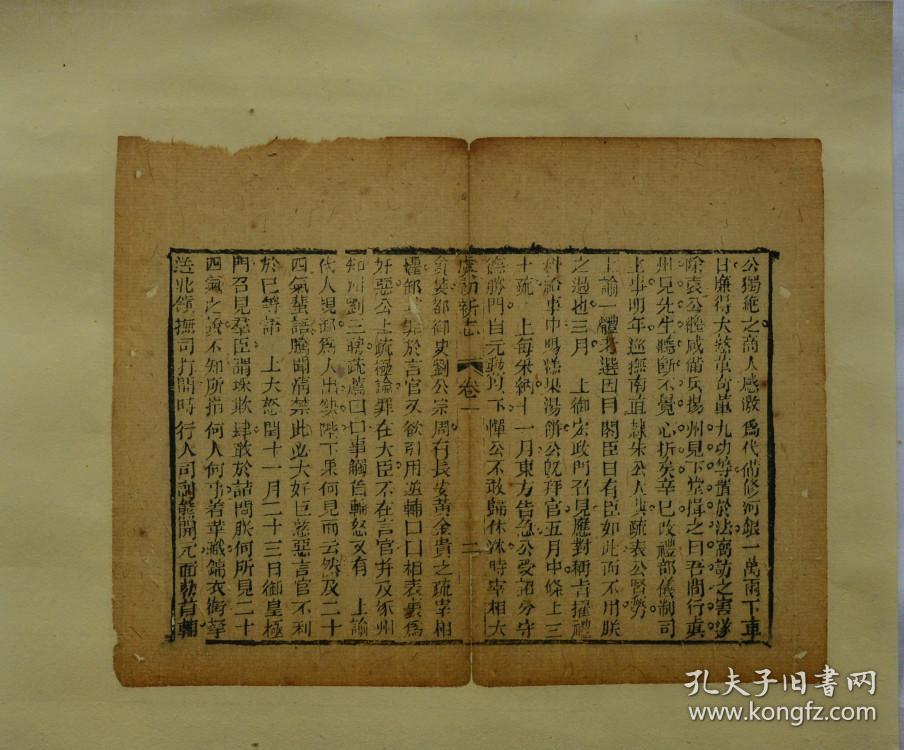 公獨絕之商人感激爲代偹修河銀一萬兩下車
日廉得大憝董奇董九功等置於法窩訪之害遂
除袁公繼咸備兵揚州見下堂揖之曰吾間行眞
州見先生轎斷不覺心折矣辛巳改禮部儀制司
主事明年巡撫南直隸朱公大典疏表公賢勞
上諭一體考選因目閣臣曰有臣如此而不用朕
之過也三月 上御宏政門召見應對稱旨擢禮
科給事中賜糕果湯餅公旣拜官五月中條上三
十疏 上每采納十一月東方告急公受詔分守
德勝門自元勳以下憚公不敢歸休沐時宰相大
虞初新志 卷一 二
貪婪都御史劉公宗周有長安黃金貴之疏宰相
於言官又欲引用逆輔口口相表裏爲
奸惡公上疏極論罪在大臣不在言官并及涿州
知州劉三聘疏薦口口事觸首輔怒又有 上諭
代人規卸爲人出缺陛下果何見而云然及二十
四氣蜚語騰聞淸禁此必大奸巨憝惡言官不利
於已等語 上大怒閏十一月二十三日御皇極
門召見羣臣謂埰欺肆敢於詰問朕何所見二十
四氣之說不知所指何人何事著革職錦衣衛拏
送北鎮撫司打問時行人司副熊開元面劾首輔
孔夫子旧书网
www.kongfz.com